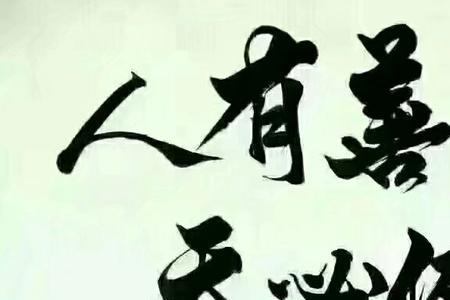 人有善
天必佑